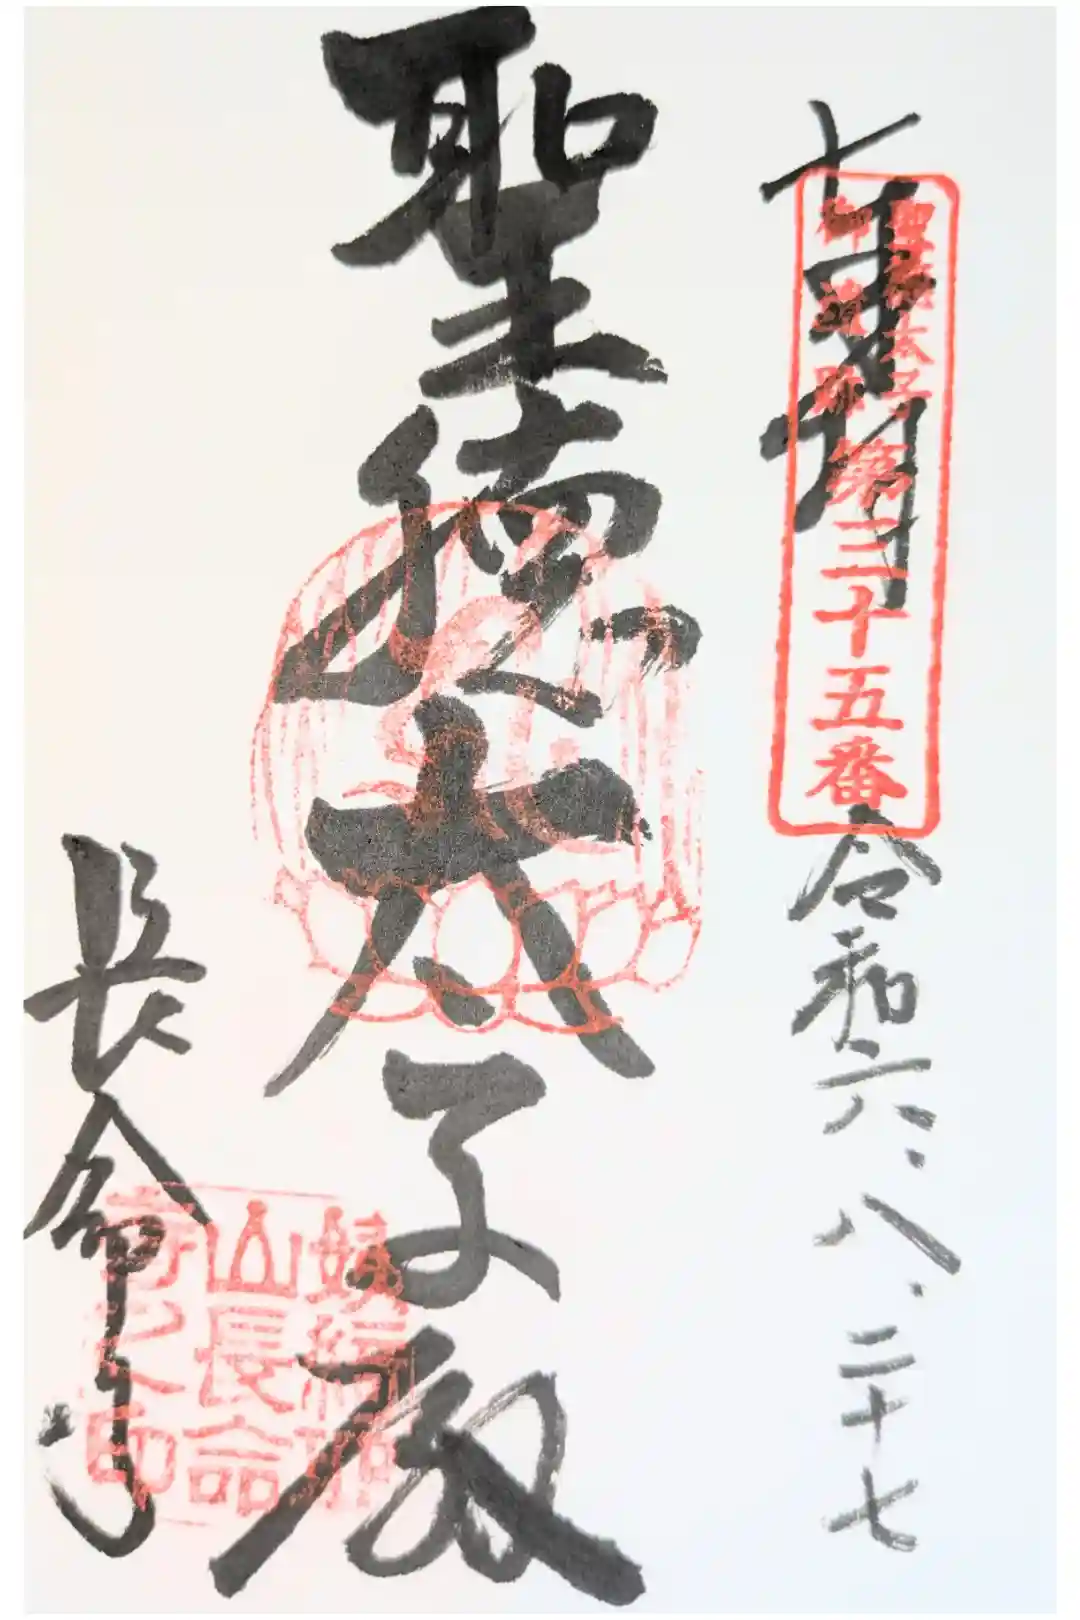 奉拝
聖徳太子
御遺跡
第三十五番
令和六、八、二十七
聖徳太子殿
長命寺
姨綺耶
山長命
寺之印